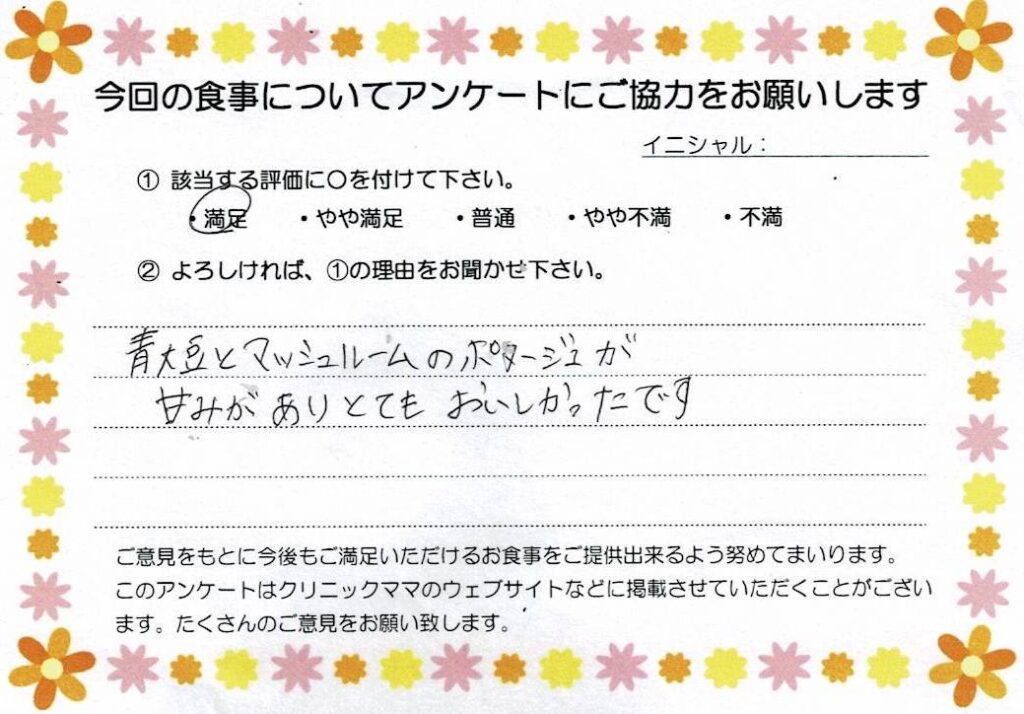 今回の食事についてアンケートにご協力をお願いします
イニシャル：
① 該当する評価に○を付けて下さい。
・満足 ・やや満足 ・普通 ・やや不満 ・不満
② よろしければ、①の理由をお聞かせ下さい。
青大豆とマッシュルームのポタージュが
甘みがありとてもおいしかったです
ご意見をもとに今後もご満足いただけるお食事をご提供出来るよう努めてまいります。
このアンケートはクリニックママのウェブサイトなどに掲載させていただくことがござい
ます。たくさんのご意見をお願い致します。